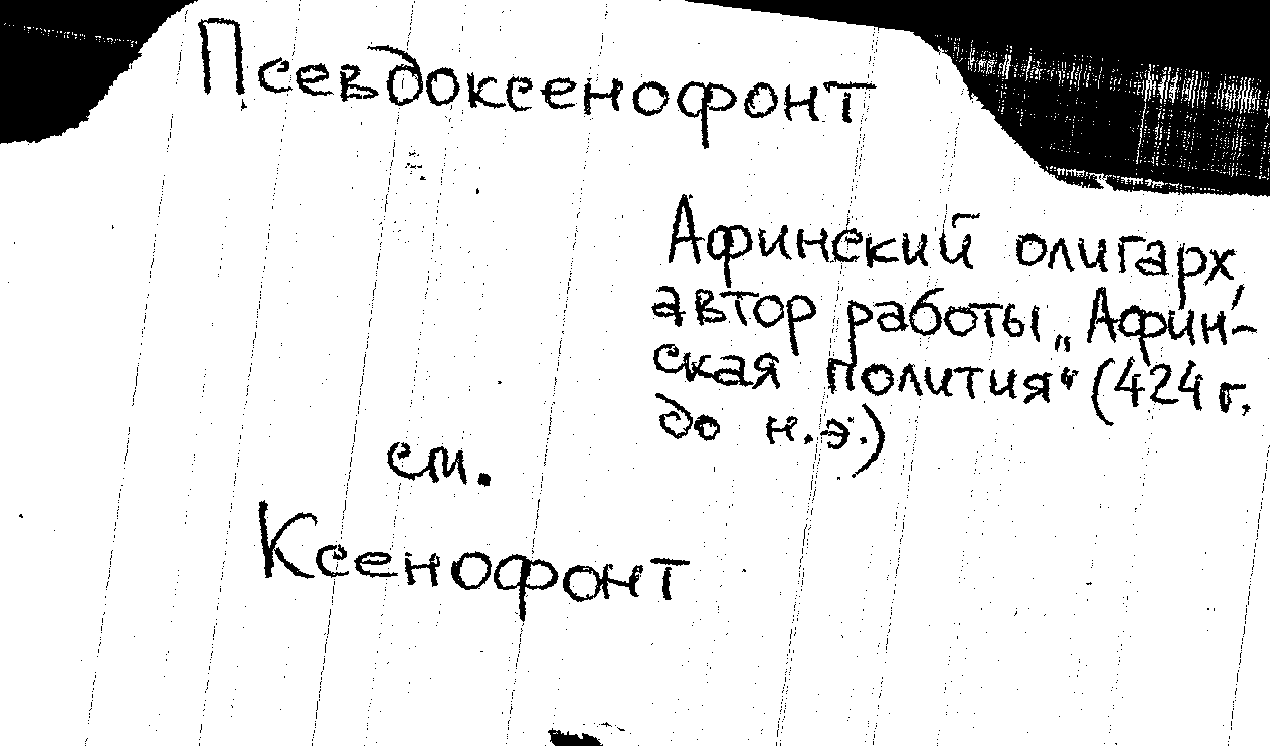 Псевдоксенофонт
Афинский олигарх,
автор работы „Афин-
ская полития“ (424 г.
до н.э.)
см.
Ксенофонт